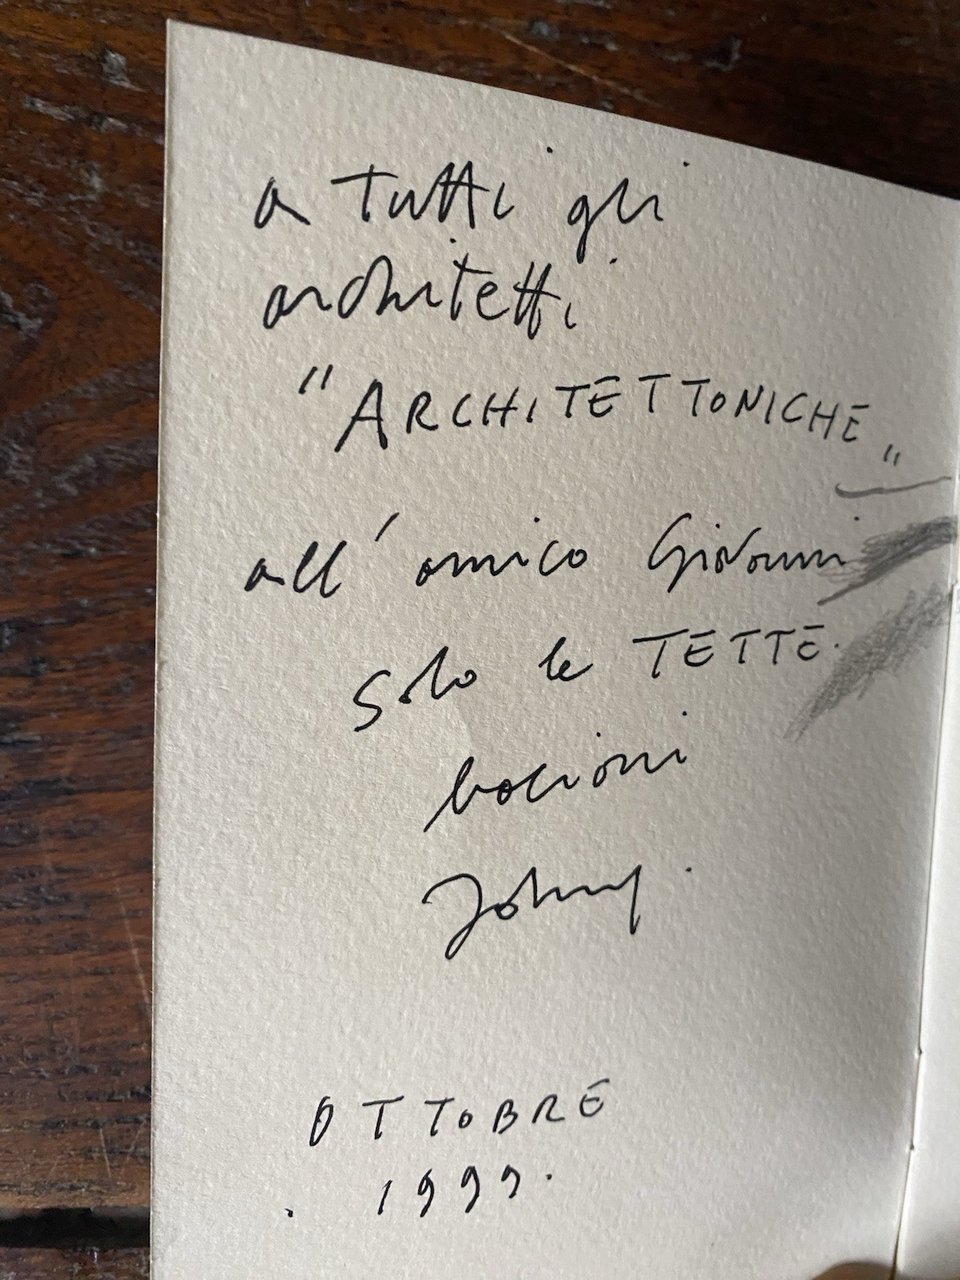 a tutti gli
architetti
"ARCHITETTONICHE"
all'amico Giovanni
solo le TETTE.
bacioni
Johnny.
OTTOBRE
. 1999.